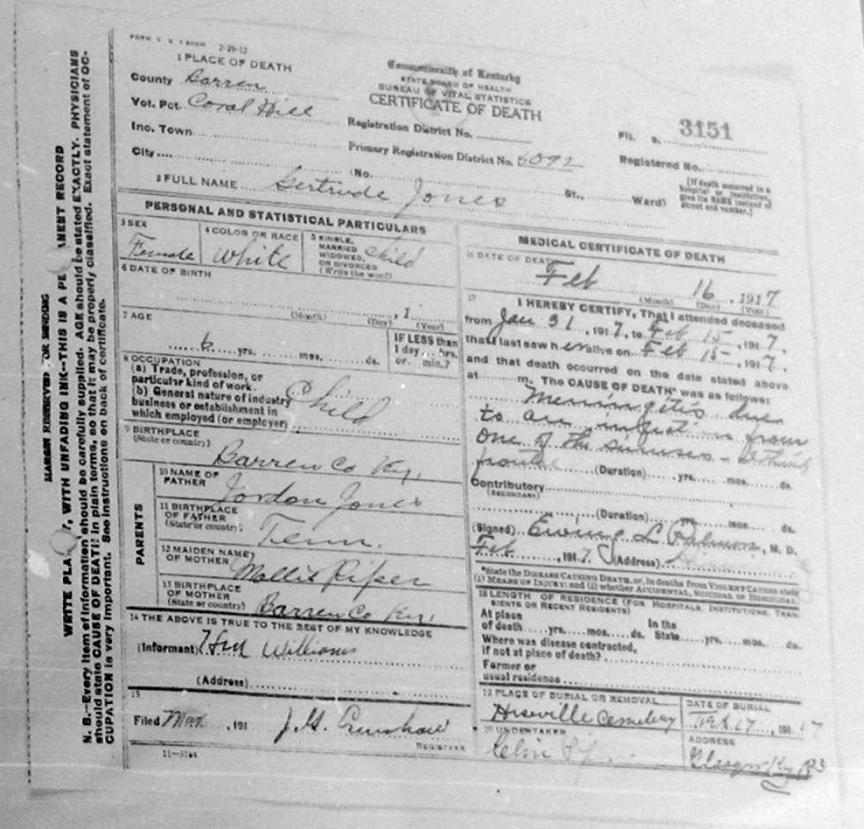 FORM V. S. 2-29-12
1 PLACE OF DEATH
County Barren
Vot. Pct. Coral Hill
Inc. Town
City
Commonwealth of Kentucky
STATE BOARD OF HEALTH
BUREAU OF VITAL STATISTICS
CERTIFICATE OF DEATH
Registration District No.
Primary Registration District No. 6092
File No. 3151
Registered No.
(No. St., Ward)
[If death occurred in a hospital or institution, give its NAME instead of street and number.]
2 FULL NAME Gertrude Jones
PERSONAL AND STATISTICAL PARTICULARS
3 SEX
Female
4 COLOR OR RACE
White
5 SINGLE, MARRIED WIDOWED, OR DIVORCED (Write the word) Child
6 DATE OF BIRTH
(Month) (Day) , 1 (Year)
7 AGE
6 yrs. mos. ds.
IF LESS than 1 day hrs. or min.?
8 OCCUPATION
(a) Trade, profession, or
particular kind of work
(b) General nature of industry
business or establishment in
which employed (or employer)
Child
9 BIRTHPLACE
(State or country)
Barren Co Ky.
PARENTS
10 NAME OF FATHER
Jordon Jones
11 BIRTHPLACE OF FATHER
(State or country)
Tenn.
12 MAIDEN NAME OF MOTHER
Mollie Piper
13 BIRTHPLACE OF MOTHER
(State or country) Barren Co Ky.
14 THE ABOVE IS TRUE TO THE BEST OF MY KNOWLEDGE
(Informant) Williams
(Address)
15
Filed , 191 J.G. Crenshaw
REGISTRAR
MEDICAL CERTIFICATE OF DEATH
16 DATE OF DEATH
Feb 16, 1917
(Month) (Day) (Year)
17
I HEREBY CERTIFY, That I attended deceased
from Jan 31, 1917, to Feb 15, 1917
that I last saw her alive on Feb 15, 1917.
and that death occurred on the date stated above
at m. The CAUSE OF DEATH* was as follows:
Meningitis due
to an from
one of the sinuses - I think
(Duration) yrs. mos. ds.
Contributory
(SECONDARY)
(Duration) yrs. mos. ds.
(Signed) Ewing L. Palmore, M. D.
Feb , 1917 (Address)
*State the DISEASE CAUSING DEATH, or, in deaths from VIOLENT CAUSES state
(1) MEANS OF INJURY; and (2) whether ACCIDENTAL, SUICIDAL or HOMICIDAL.
18 LENGTH OF RESIDENCE (FOR HOSPITALS, INSTITUTIONS, TRANSIENTS OR RECENT RESIDENTS)
At place of death yrs. mos. ds. In the State yrs. mos. ds.
Where was disease contracted,
if not at place of death?
Former or
usual residence
19 PLACE OF BURIAL OR REMOVAL
Hiseville Cemetery
DATE OF BURIAL
Feb 17, 1917
20 UNDERTAKER
ADDRESS
Glasgow Ky R3
MARGIN RESERVED FOR BINDING
WRITE PLAINLY, WITH UNFADING INK—THIS IS A PERMANENT RECORD
N. B.—Every item of information should be carefully supplied. AGE should be stated EXACTLY. PHYSICIANS
should state CAUSE OF DEATH in plain terms, so that it may be properly classified. Exact statement of OC-
CUPATION is very important. See instructions on back of certificate.